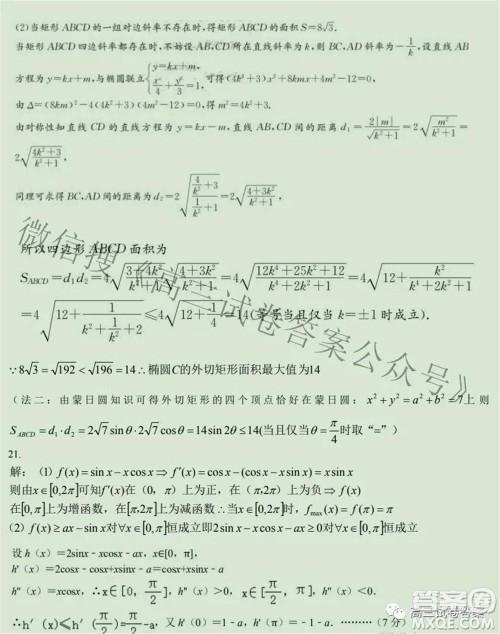 (2)当矩形 ABCD 的一组对边斜率不存在时,得矩形 ABCD 的面积 S=8√3.
当矩形 ABCD 四边斜率都存在时,不妨设 AB,CD 所在直线斜率为 k,则 BC,AD 斜率为 -1/k,设直线 AB
方程为 y=kx+m,与椭圆联立{y=kx+m, x²/4+y²/3=1, 可得(4k²+3)x²+8kmx+4m²-12=0,
由 Δ=(8km)²-4(4k²+3)(4m²-12)=0,得 m²=4k²+3,
由对称性知直线 CD 的直线方程为 y=kx-m,直线 AB,CD 间的距离 d₁=2|m|/√(k²+1)=2√(m²/(k²+1))=
2√((4k²+3)/(k²+1)),
同理可求得 BC,AD 间的距离为 d₂=2√((4/k²+3)/(1/k²+1))=2√((4+3k²)/(k²+1)),
所以四边形 ABCD 面积为
S_ABCD=d₁d₂=4√((3+4k²)/(k²+1))√((4+3k²)/(k²+1))=4√((12k⁴+25k²+12)/(k⁴+2k²+1))=4√(12+k²/(k⁴+2k²+1))
=4√(12+1/(k²+1/k²+2))≤4√(12+1/4)=14(等号当且仅当 k=±1 时成立).
∵8√3=√192<√196=14∴椭圆C的外切矩形面积最大值为14
(法二：由蒙日圆知识可得外切矩形的四个顶点恰好在蒙日圆：x²+y²=a²+b²=7上则
S_ABCD=d₁·d₂=2√7sinθ·2√7cosθ=14sin2θ≤14(当且仅当θ=π/4时取“=”)
21.
解：(1) f(x)=sinx-xcosx⇒f′(x)=cosx-(cosx-xsinx)=xsinx
则由x∈[0,2π]可知f′(x)在（0，π）上为正，在（π,2π）上为负⇒f(x)
在[0,π]上为增函数，在[π,2π]上为减函数∴当x∈[0,2π]时，f_max(x)=f(π)=π
(2) f(x)≥ax-sinx对∀x∈[0,π]恒成立即2sinx-xcosx-ax≥0对∀x∈[0,π]恒成立
设 h（x）=2sinx-xcosx-ax，x∈[0，π]，
h′（x）=2cosx-cosx+xsinx-a=cosx+xsinx-a
h″（x）=xcosx，∴x∈[0，π/2]，h″（x）>0，x∈[π/2，π]，h″（x）<0.
∴h′（x）≤h′（π/2）=π/2-a，又 h′（0）=1-a，h′（π）=-1-a.………（7分）
微信搜《高三试卷答案公众号》
高三试卷答案
答案圈
MXQE.COM